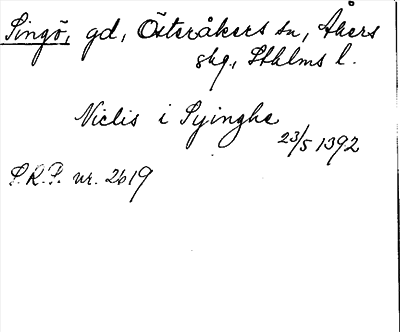 Singö, gd, Österåkers sn, Åkers
skg., Sthlms l.
Niclis i Syinghe
23/5 1392
S.R.P. nr. 2619